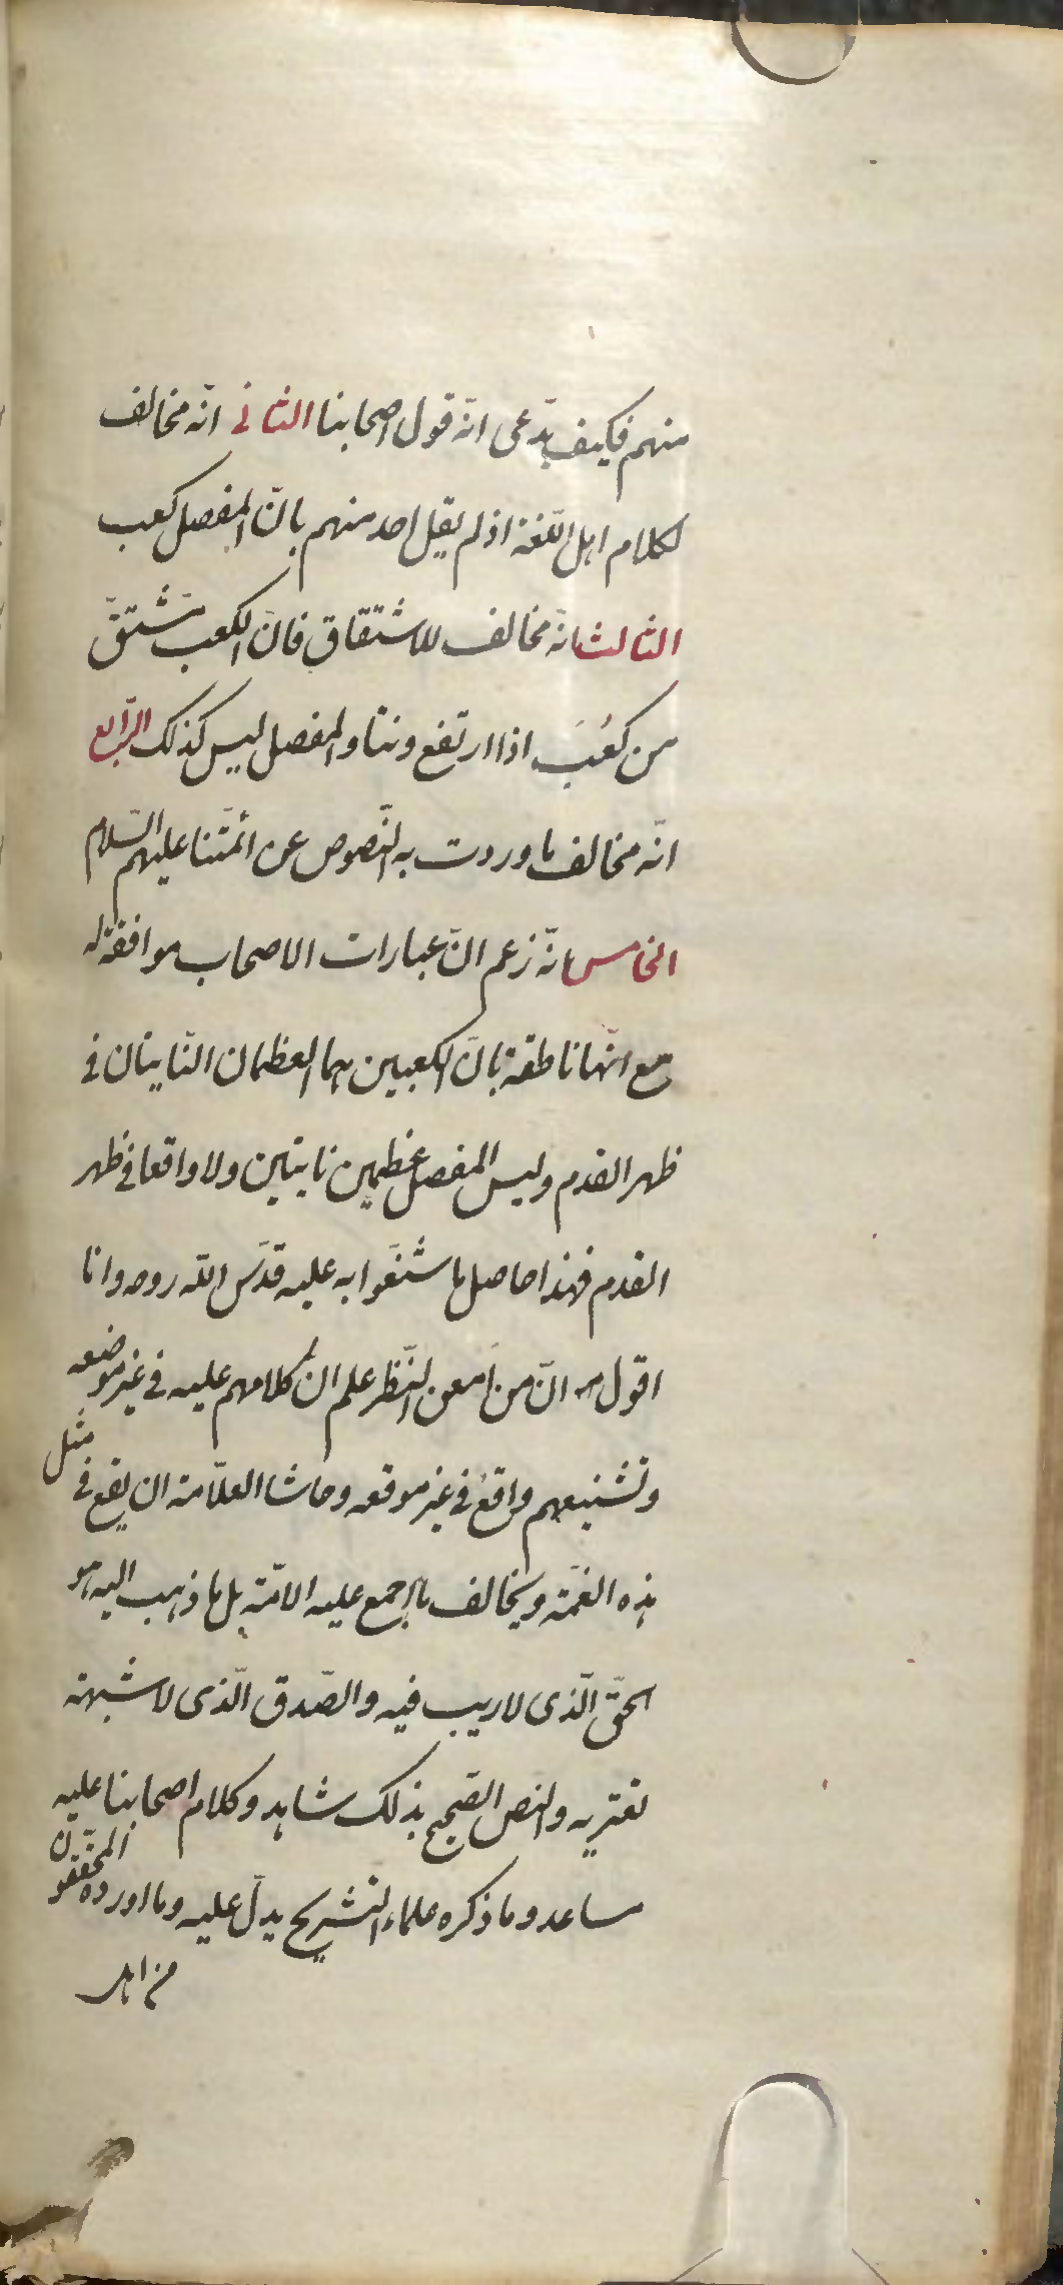 منهم فكيف يدّعى انّه قول اصحابنا الثانى انّه مخالف
لكلام اهل اللّغة اذ لم يقل احد منهم بانّ المفصل كعب
الثالث انّه مخالف للاشتقاق فانّ الكعب مشتقّ
من كعُبَ اذا ارتفع ونتا والمفصل ليس كذلك الرّابع
انّه مخالف ما وردت به النّصوص عن ائمّتنا عليهم السّلام
الخامس انّه زعم انّ عبارات الاصحاب موافقة له
مع انّها ناطقة بانّ الكعبين هما العظمان النّاتيان فى
ظهر القدم وليس المفصل عظمين ناتيين ولا واقعا فى ظهر
القدم فهذا حاصل ما شنّعوا به عليه قدّس اللّه روحه وانا
اقول انّ من امعن النّظر علم انّ كلامهم عليه فى غير موضعه
وتشنيعهم واقعٌ فى غير موقعه وحاشا العلّامة ان يقع فى مثل
هذه الغمّة ويخالف ما اجمع عليه الامّة بل ما ذهب اليه هو
الحقّ الّذى لا ريب فيه والصّدق الّذى لا شبهة
تعتريه والنص الصّحيح بذلك شاهد وكلام اصحابنا عليه
مساعد وما ذكره علماء التشريح يدلّ عليه وما اورده المحقّقون
من اهل